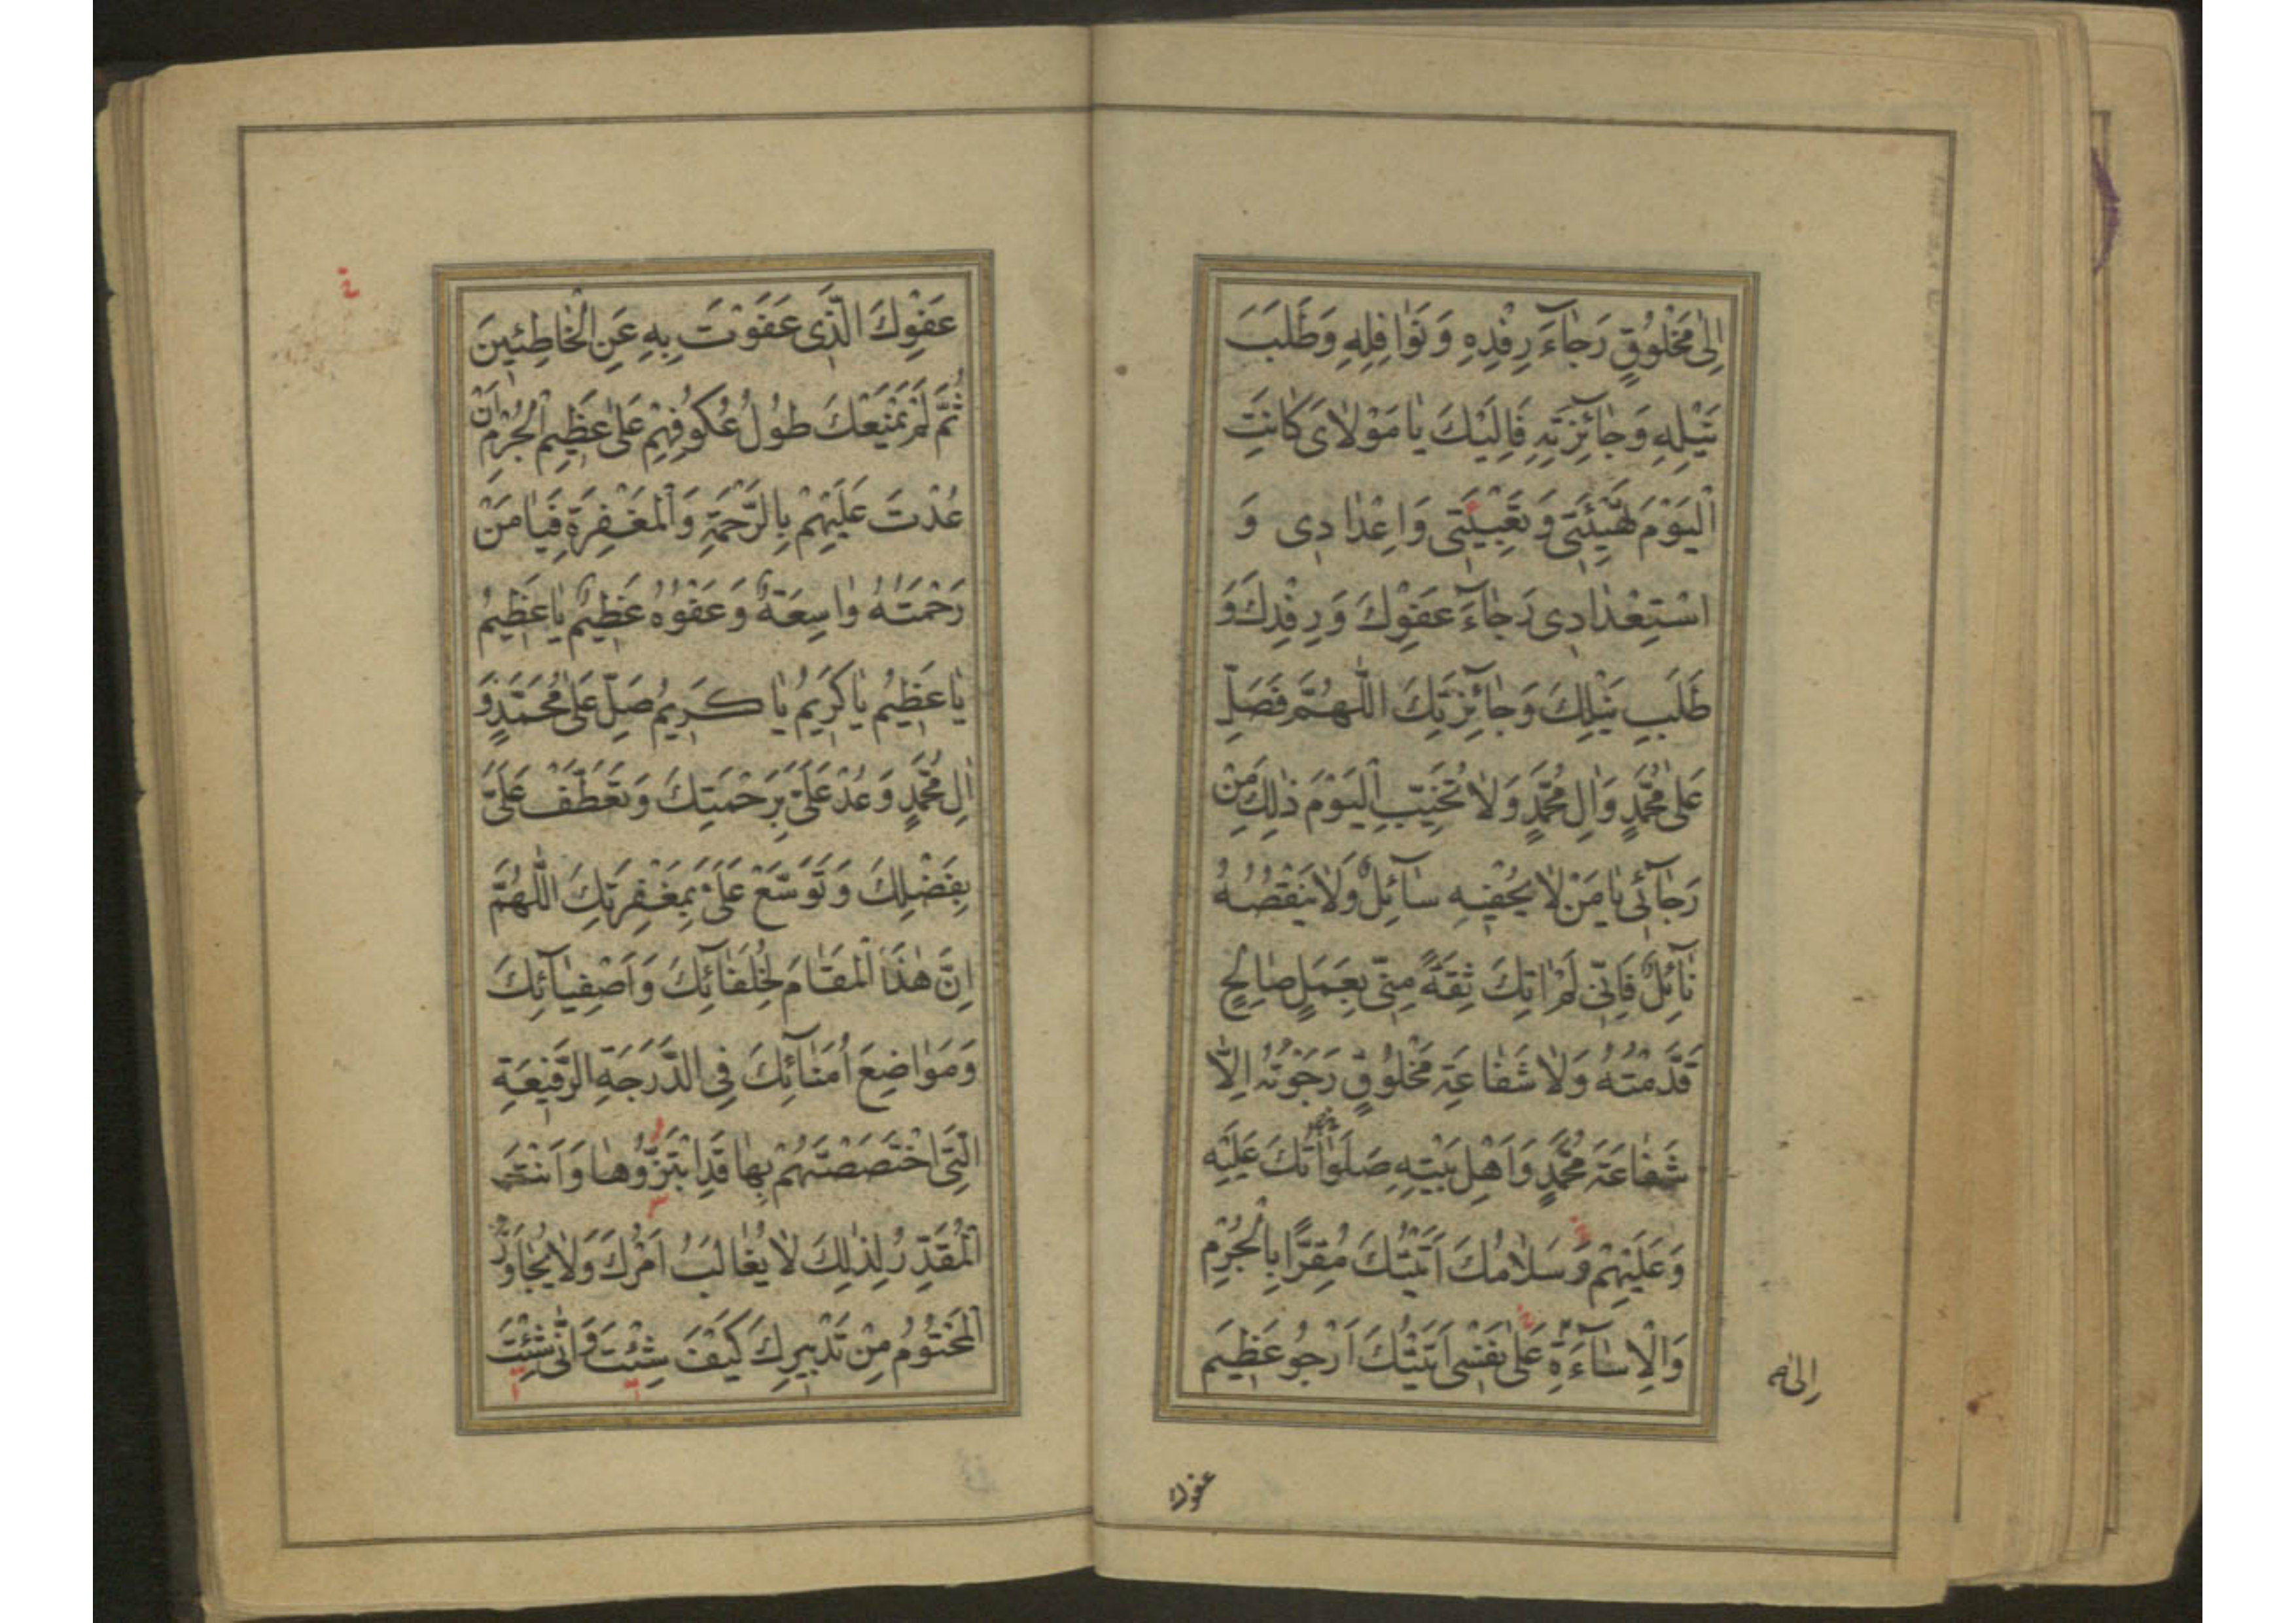 اِلٰى مَخْلُوقٍ رَجٰاۤءَ رِفْدِهِ وَ نَوٰافِلِهِ وَ طَلَبَ
نَيْلِهِ وَ جٰاۤئِزَتِهِ فَاِلَيْكَ يٰا مَوْلاٰىَ كٰانَتِ
الْيَوْمَ تَهْيِئَتِى وَ تَعْبِئَتِى وَ اِعْدٰادِى وَ
اسْتِعْدٰادِى رَجٰاۤءَ عَفْوِكَ وَ رِفْدِكَ وَ
طَلَبِ نَيْلِكَ وَ جٰاۤئِزَتِكَ اللّٰهُمَّ فَصَلِّ
عَلٰى مُحَمَّدٍ وَ اٰلِ مُحَمَّدٍ وَ لاٰ تُخَيِّبِ الْيَوْمَ ذٰلِكَ مِنْ
رَجٰاۤئِى يٰا مَنْ لاٰ يُحْفِيهِ سٰاۤئِلٌ وَ لاٰ يَنْقُصُهُ
نٰاۤئِلٌ فَاِنِّى لَمْ اٰتِكَ ثِقَةً مِنِّى بِعَمَلٍ صٰالِحٍ
قَدَّمْتُهُ وَ لاٰ شَفٰاعَةِ مَخْلُوقٍ رَجَوْتُهُ اِلاّٰ
شَفٰاعَةَ مُحَمَّدٍ وَ اَهْلِ بَيْتِهِ صَلَوٰاتُكَ عَلَيْهِ
وَ عَلَيْهِمْ وَ سَلاٰمُكَ اَتَيْتُكَ مُقِرًّا بِالْجُرْمِ
وَ الْاِسٰاۤءَةِ عَلٰى نَفْسِى اَتَيْتُكَ اَرْجُو عَظِيمَ
اِلٰيه
عفوك
عَفْوِكَ الَّذِى عَفَوْتَ بِهِ عَنِ الْخٰاطِئِينَ
ثُمَّ لَمْ يَمْنَعْكَ طُولُ عُكُوفِهِمْ عَلٰى عَظِيمِ الْجُرْمِ اَنْ
عُدْتَ عَلَيْهِمْ بِالرَّحْمَةِ وَ الْمَغْفِرَةِ فَيٰا مَنْ
رَحْمَتُهُ وٰاسِعَةٌ وَ عَفْوُهُ عَظِيمٌ يٰا عَظِيمُ
يٰا عَظِيمُ يٰا كَرِيمُ يٰا كَرِيمُ صَلِّ عَلٰى مُحَمَّدٍ وَ
اٰلِ مُحَمَّدٍ وَ عُدْ عَلَىَّ بِرَحْمَتِكَ وَ تَعَطَّفْ عَلَىَّ
بِفَضْلِكَ وَ تَوَسَّعْ عَلَىَّ بِمَغْفِرَتِكَ اللّٰهُمَّ
اِنَّ هٰذَا الْمَقٰامَ لِخُلَفٰاۤئِكَ وَ اَصْفِيٰاۤئِكَ
وَ مَوٰاضِعَ اُمَنٰاۤئِكَ فِى الدَّرَجَةِ الرَّفِيعَةِ
الَّتِى اخْتَصَصْتَهُمْ بِهٰا قَدِ ابْتَزُّوهٰا وَ اَنْتَ
الْمُقَدِّرُ لِذٰلِكَ لاٰ يُغٰالَبُ اَمْرُكَ وَ لاٰ يُجٰاوَزُ
الْمَحْتُومُ مِنْ تَدْبِيرِكَ كَيْفَ شِئْتَ وَ اَنّٰى شِئْتَ